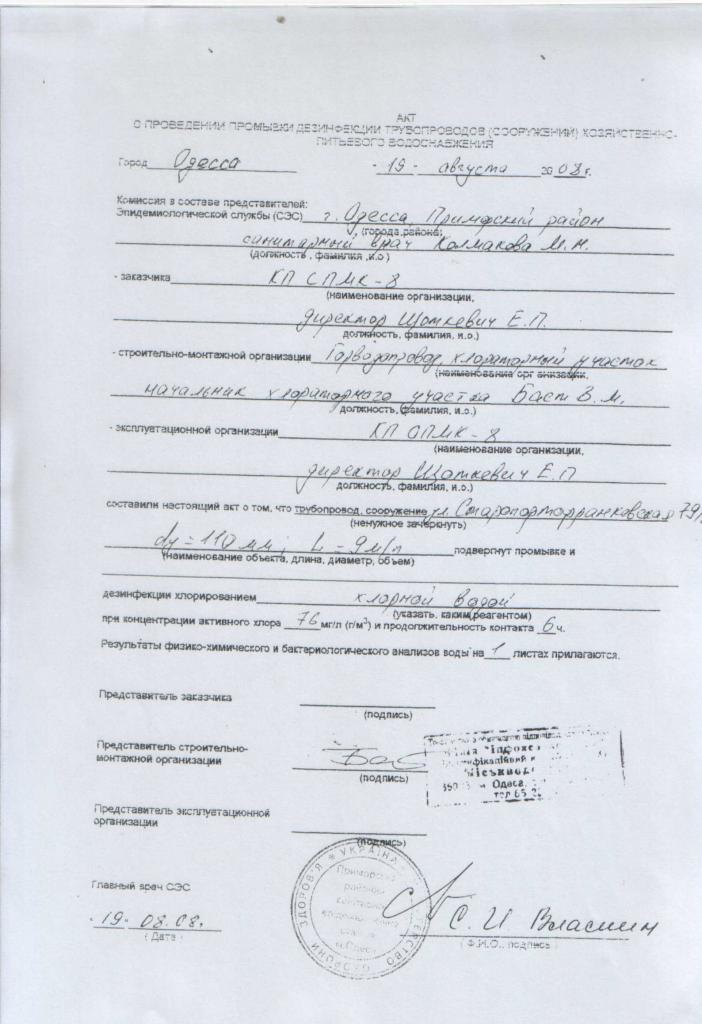 АКТ
О ПРОВЕДЕНИИ ПРОМЫВКИ ДЕЗИНФЕКЦИИ ТРУБОПРОВОДОВ (СООРУЖЕНИЙ) ХОЗЯЙСТВЕННО-
ПИТЬЕВОГО ВОДОСНАБЖЕНИЯ
Город Одесса - 19 - августа 2008 г.
Комиссия в составе представителей:
Эпидемиологической службы (СЭС) г. Одесса, район
(города, района,
санитарный врач Колмакова М.Н.
(должность, фамилия, и.о.)
- заказчика КП СПМК-8
(наименование организации,
директор Шоткевич Е.П.
должность, фамилия, и.о.)
- строительно-монтажной организации Горводопровод, хлораторный участок
(наименование организации,
начальник хлораторного участка Баст В.М.
должность, фамилия, и.о.)
- эксплуатационной организации КП СПМК-8
(наименование организации,
директор Шоткевич Е.П
должность, фамилия, и.о.)
составили настоящий акт о том, что трубопровод, сооружение ул. Старопортофранковская 79
(ненужное зачеркнуть)
dy=110 мм; L=9м/п подвергнут промывке и
(наименование объекта, длина, диаметр, объем)
дезинфекции хлорированием хлорной водой
(указать, каким реагентом)
при концентрации активного хлора 76 мг/л (г/м³) и продолжительность контакта 6 ч.
Результаты физико-химического и бактериологического анализов воды на 1 листах прилагаются.
Представитель заказчика
(подпись)
Представитель строительно-
монтажной организации
(подпись)
м. Одеса
Представитель эксплуатационной
организации
(подпись)
УКРАЇНА
ЗДОРОВ'Я
ОХОРОНИ
м.Одеси
Главный врач СЭС
- 19 - 08.08. С.И
(Дата) (Ф.И.О., подпись)